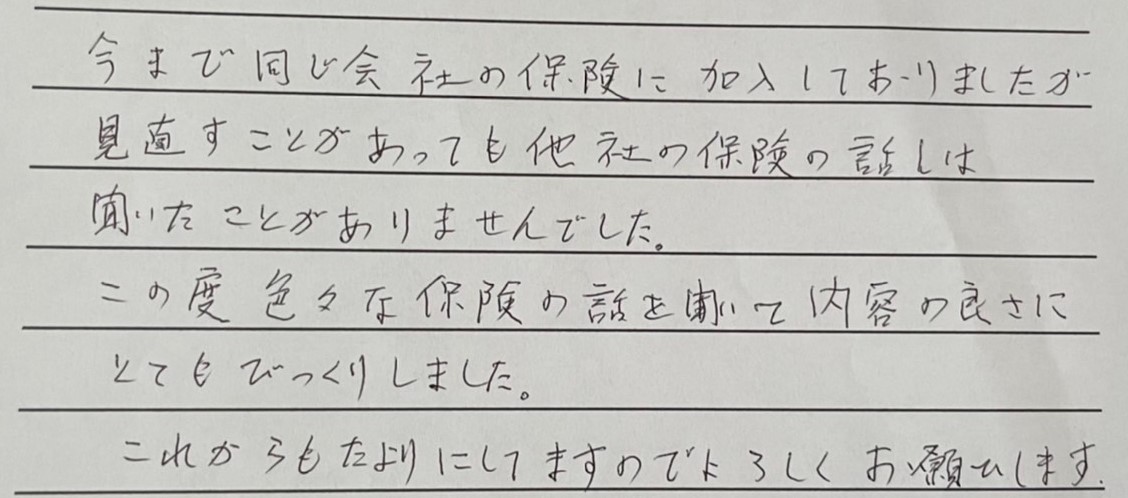 今まで同じ会社の保険に加入しておりましたが
見直すことがあっても他社の保険の話しは
聞いたことがありませんでした。
この度色々な保険の話を聞いて内容の良さに
とてもびっくりしました。
これからもたよりにしてますのでよろしくお願いします.